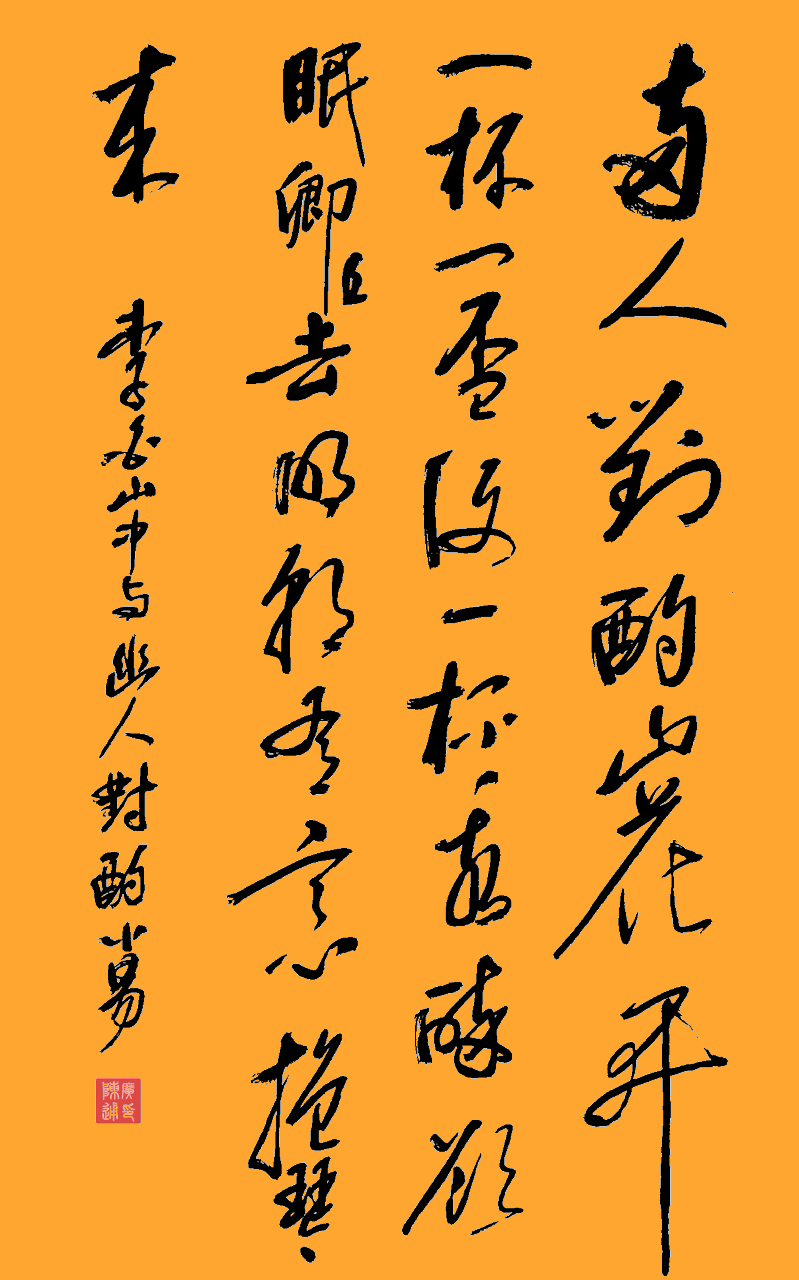 两人對酌山花开
一杯一盃復一杯我醉欲
眠卿且去明朝有意抱琴
来
李白山中与幽人對酌